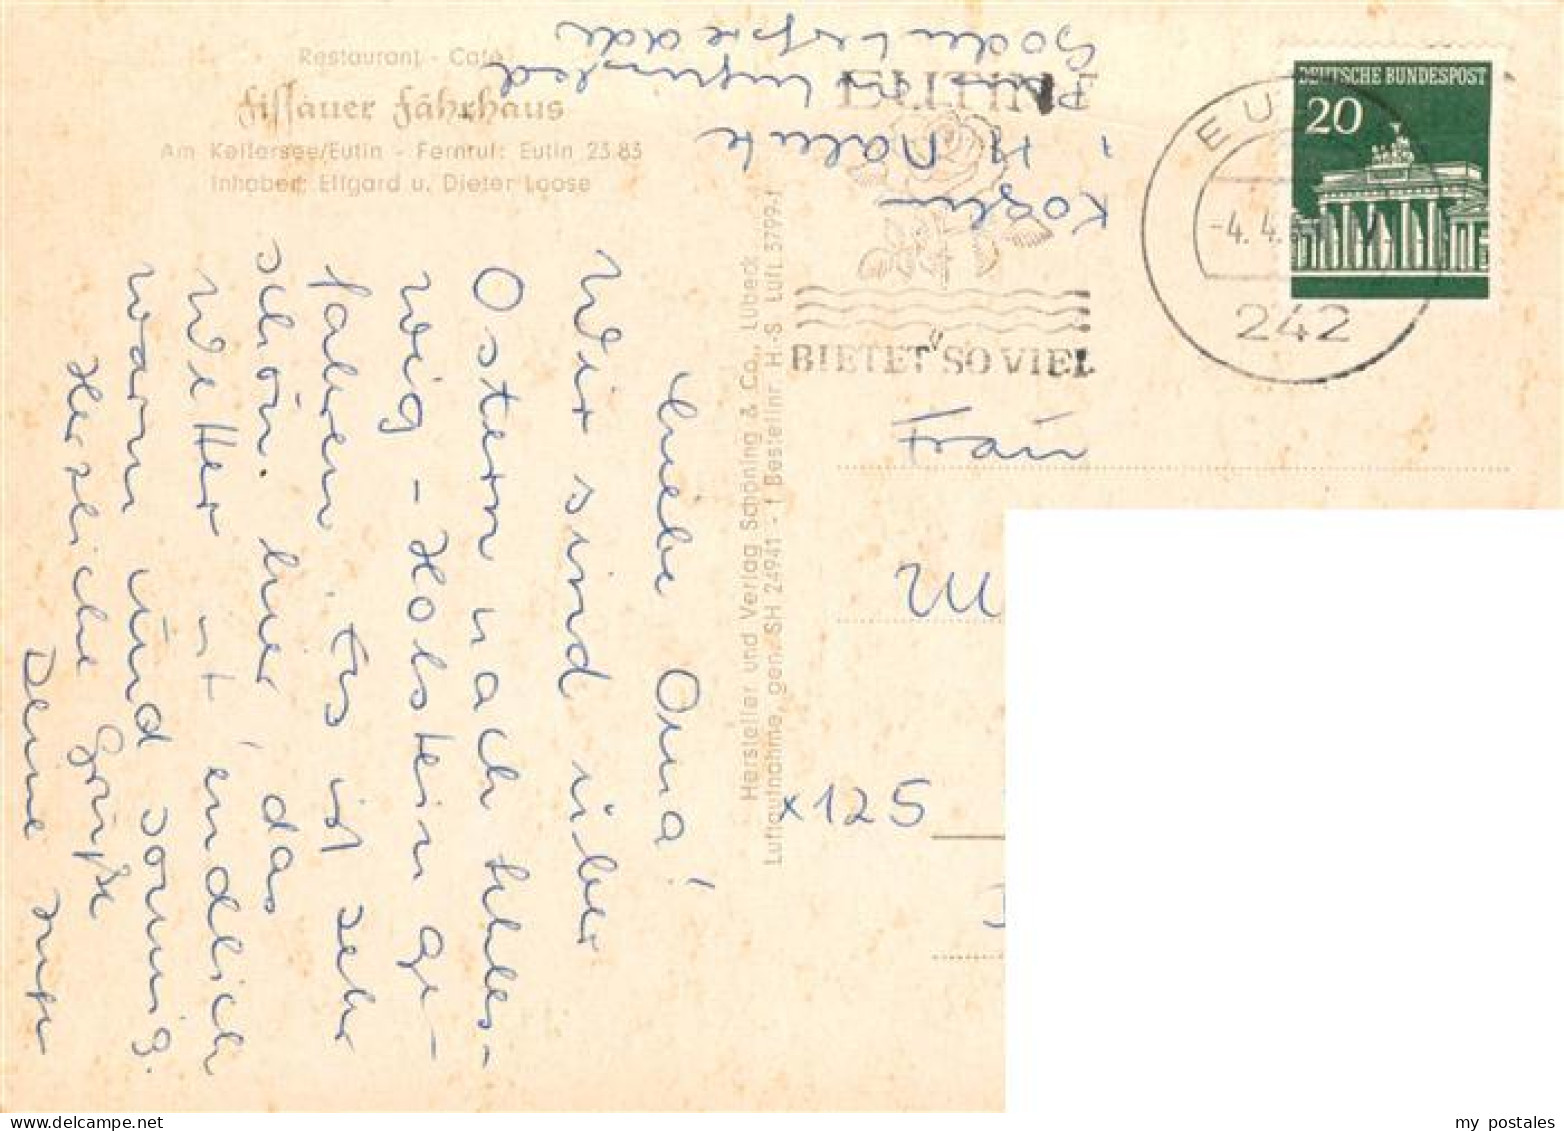 Restaurant - Café
Fissauer Fährhaus
Am Kellersee/Eutin - Fernruf: Eutin 23 83
Inhaber: Elfgard u. Dieter Loose
Liebe Oma!
Wir sind über
Ostern nach Schles-
wig-Holstein ge-
fahren. Es ist sehr
schön hier, das
Wetter ist endlich
warm und sonnig.
Herzliche Grüße
Deine
Hersteller und Verlag Schöning & Co., Lübeck
Luftaufnahme, gen. SH 24941 - 1 Bestellnr. H.-S. Luft. 5799-1
i. H. Malente
EUTINE
BIETET SO VIEL
EUTIN
-4. 4.
242
DEUTSCHE BUNDESPOST
20
Frau
M
x125
my postales